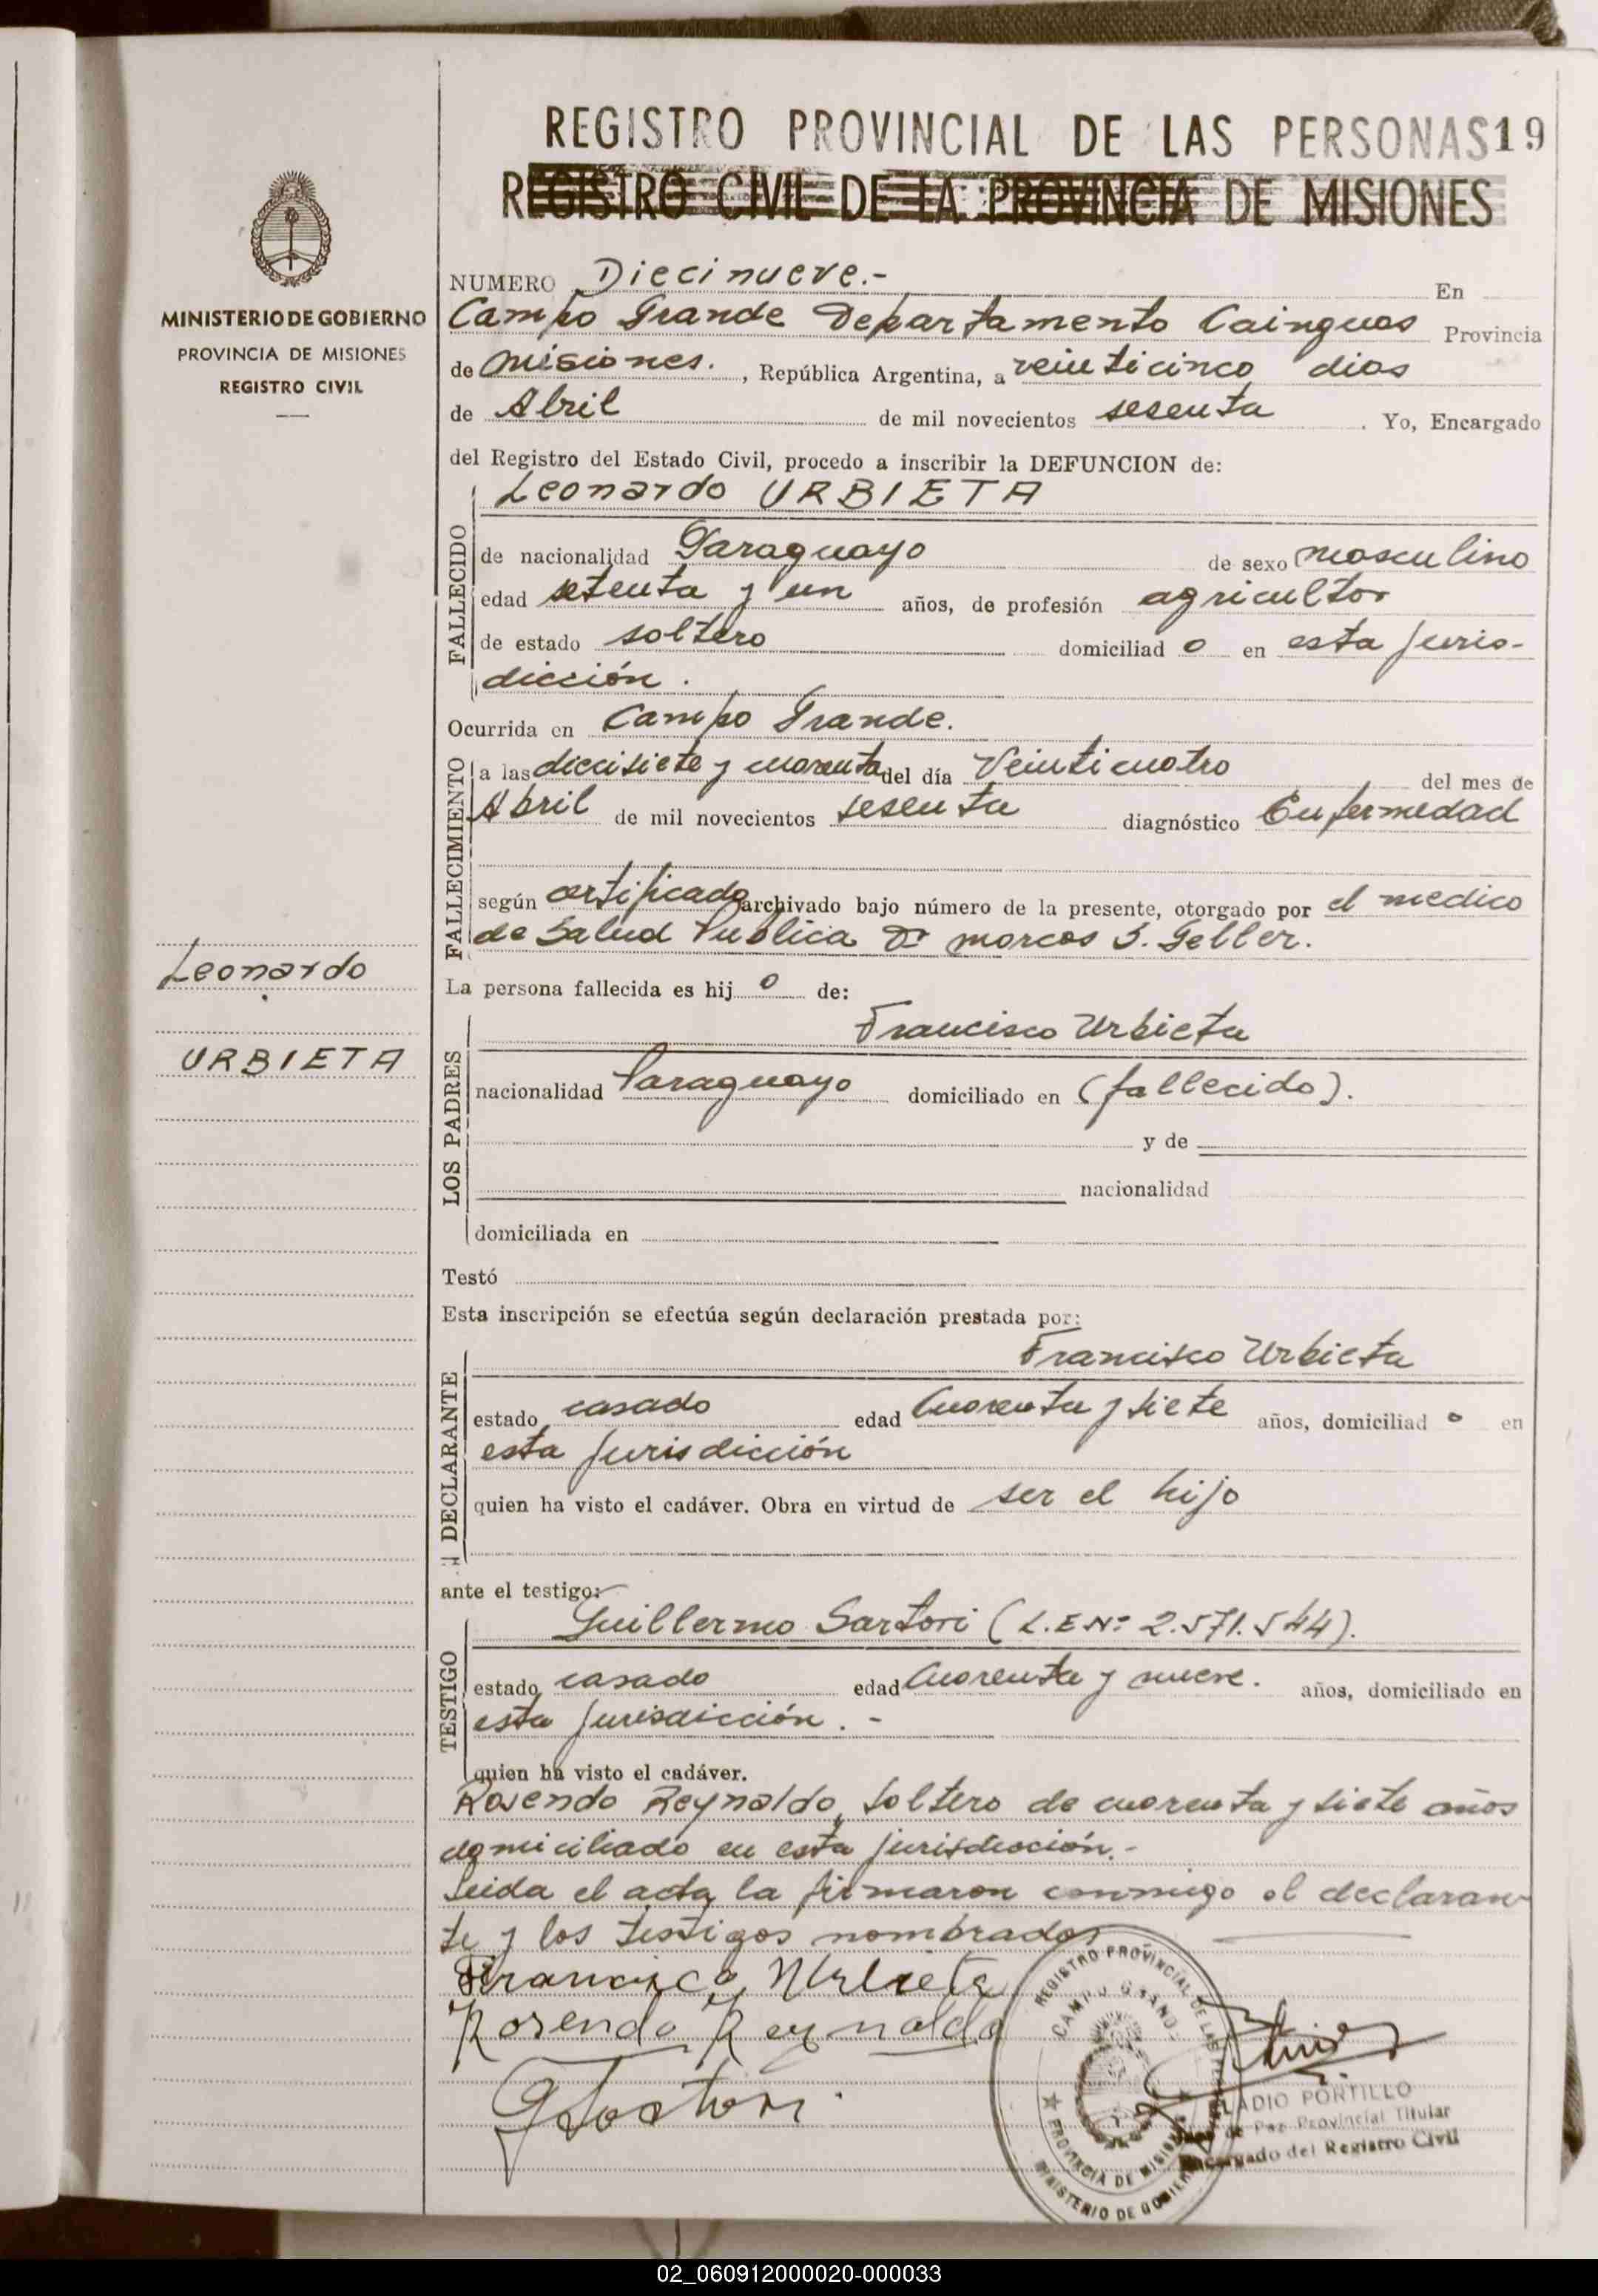 REGISTRO PROVINCIAL DE LAS PERSONAS 19
REGISTRO CIVIL DE LA PROVINCIA DE MISIONES
MINISTERIO DE GOBIERNO
PROVINCIA DE MISIONES
REGISTRO CIVIL
NUMERO Diecinueve.- En
Campo Grande Departamento Cainguas Provincia
de Misiones. , República Argentina, a veinticinco dias
de Abril de mil novecientos sesenta . Yo, Encargado
del Registro del Estado Civil, procedo a inscribir la DEFUNCION de:
Leonardo URBIETA
FALLECIDO
de nacionalidad Paraguayo de sexo masculino
edad setenta y un años, de profesión agricultor
de estado soltero domiciliad o en esta juris-
dicción.
Ocurrida en Campo Grande.
FALLECIMIENTO
a las diecisiete y cuarenta del día Veinticuatro del mes de
Abril de mil novecientos sesenta diagnóstico Enfermedad
según certificado archivado bajo número de la presente, otorgado por el medico
de Salud Publica Dr marcos S. Geller.
Leonardo
URBIETA
La persona fallecida es hij o de:
LOS PADRES
Francisco Urbieta
nacionalidad Paraguayo domiciliado en (fallecido).
y de
nacionalidad
domiciliada en
Testó
Esta inscripción se efectúa según declaración prestada por:
DECLARANTE
Francisco Urbieta
estado casado edad Cuarenta y siete años, domiciliad o en
esta jurisdicción
quien ha visto el cadáver. Obra en virtud de ser el hijo
ante el testigo:
TESTIGO
Guillermo Sartori (L.E Nº 2.571.544).
estado casado edad Cuarenta y nueve. años, domiciliado en
esta jurisdicción.-
quien ha visto el cadáver.
Rosendo Reynaldo, soltero de cuarenta y siete años
domiciliado en esta jurisdicción.-
Leida el acta la firmaron conmigo el declaran-
te y los testigos nombrados
Francisco Urbieta
Rosendo Reynaldo
GSartori
REGISTRO PROVINCIAL DE LAS
CAMPO GRANDE
PROVINCIA DE MISIONES
MINISTERIO DE GOBIERNO
ELADIO PORTILLO
Juez de Paz Provincial Titular
Encargado del Registro Civil
02_060912000020-000033